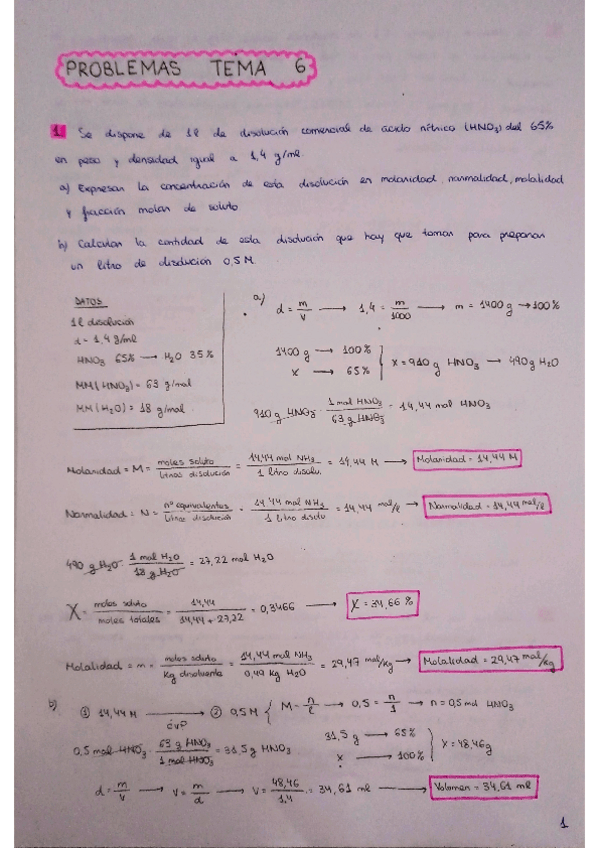 PROBLEMAS TEMA 6
1 Se dispone de 1l de disolución comercial de ácido nítrico (HNO3) del 65%
en peso y densidad igual a 1,4 g/ml.
a) Expresar la concentración de esta disolución en molaridad, normalidad, molalidad
y fracción molar de soluto
b) Calcular la cantidad de esta disolución que hay que tomar para preparar
un litro de disolución 0,5 M.
DATOS
1l disolución
d = 1,4 g/ml
HNO3 65% → H2O 35%
MM (HNO3) = 63 g/mol
MM (H2O) = 18 g/mol
a) d = m/v → 1,4 = m/1000 → m = 1400 g → 100%
1400 g → 100%
x → 65% } x = 910 g HNO3 → 490 g H2O
910 g HNO3 · 1 mol HNO3/63 g HNO3 = 14,44 mol HNO3
Molaridad = M = moles soluto/litros disolución = 14,44 mol NH3/1 litro disolu. = 14,44 M → Molaridad = 14,44 M
Normalidad = N = nº equivalentes/litros disolución = 14,44 mol NH3/1 litro disolu = 14,44 mol/l → Normalidad = 14,44 mol/l
490 g H2O · 1 mol H2O/18 g H2O = 27,22 mol H2O
X = moles soluto/moles totales = 14,44/14,44 + 27,22 = 0,3466 → X = 34,66 %
Molalidad = m = moles soluto/Kg disolvente = 14,44 mol NH3/0,49 Kg H2O = 29,47 mol/kg → Molalidad = 29,47 mol/kg
b) ① 14,44 M → ② 0,5 M { M = n/l → 0,5 = n/1 → n = 0,5 mol HNO3
¿v?
0,5 mol HNO3 · 63 g HNO3/1 mol HNO3 = 31,5 g HNO3
31,5 g → 65%
x → 100% } x = 48,46 g
d = m/v → v = m/d → v = 48,46/1,4 = 34,61 ml → Volumen = 34,61 ml
1